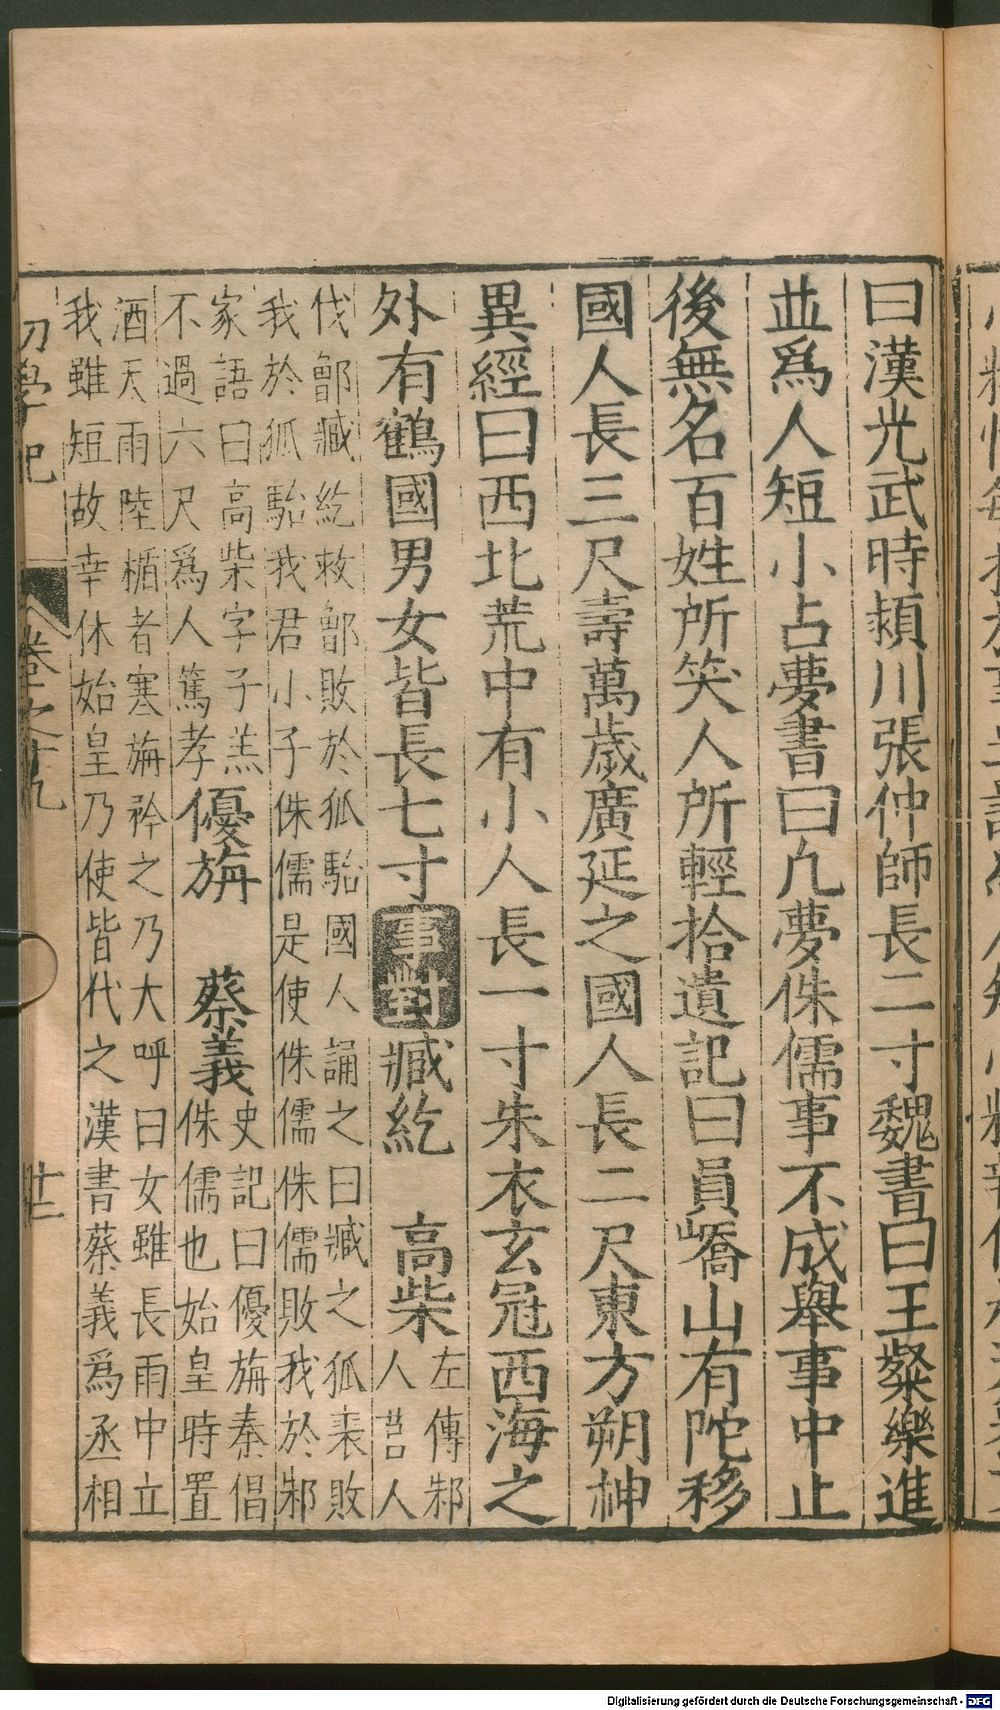 曰漢光武時潁川張仲師長二寸魏書曰王粲樂進
並爲人短小占夢書曰凢夢侏儒事不成舉事中止
後無名百姓所笑人所輕拾遺記曰員嶠山有陀移
國人長三尺壽萬歲廣延之國人長二尺東方朔神
異經曰西北荒中有小人長一寸朱衣玄冠西海之
外有鶴國男女皆長七寸事對臧紇 高柴
左傳邾
人莒人
伐鄫臧紇救鄫敗於狐駘國人誦之曰臧之狐裘敗
我於狐駘我君小子侏儒是使侏儒侏儒敗我於邾
家語曰高柴字子羔
不過六尺爲人篤孝
優旃 蔡義
史記曰優旃秦倡
侏儒也始皇時置
酒天雨陸楯者寒旃衿之乃大呼曰女雖長雨中立
我雖短故幸休始皇乃使皆代之漢書蔡義爲丞相
初學記
卷之十九
廿二
Digitalisierung gefördert durch die Deutsche Forschungsgemeinschaft - DFG